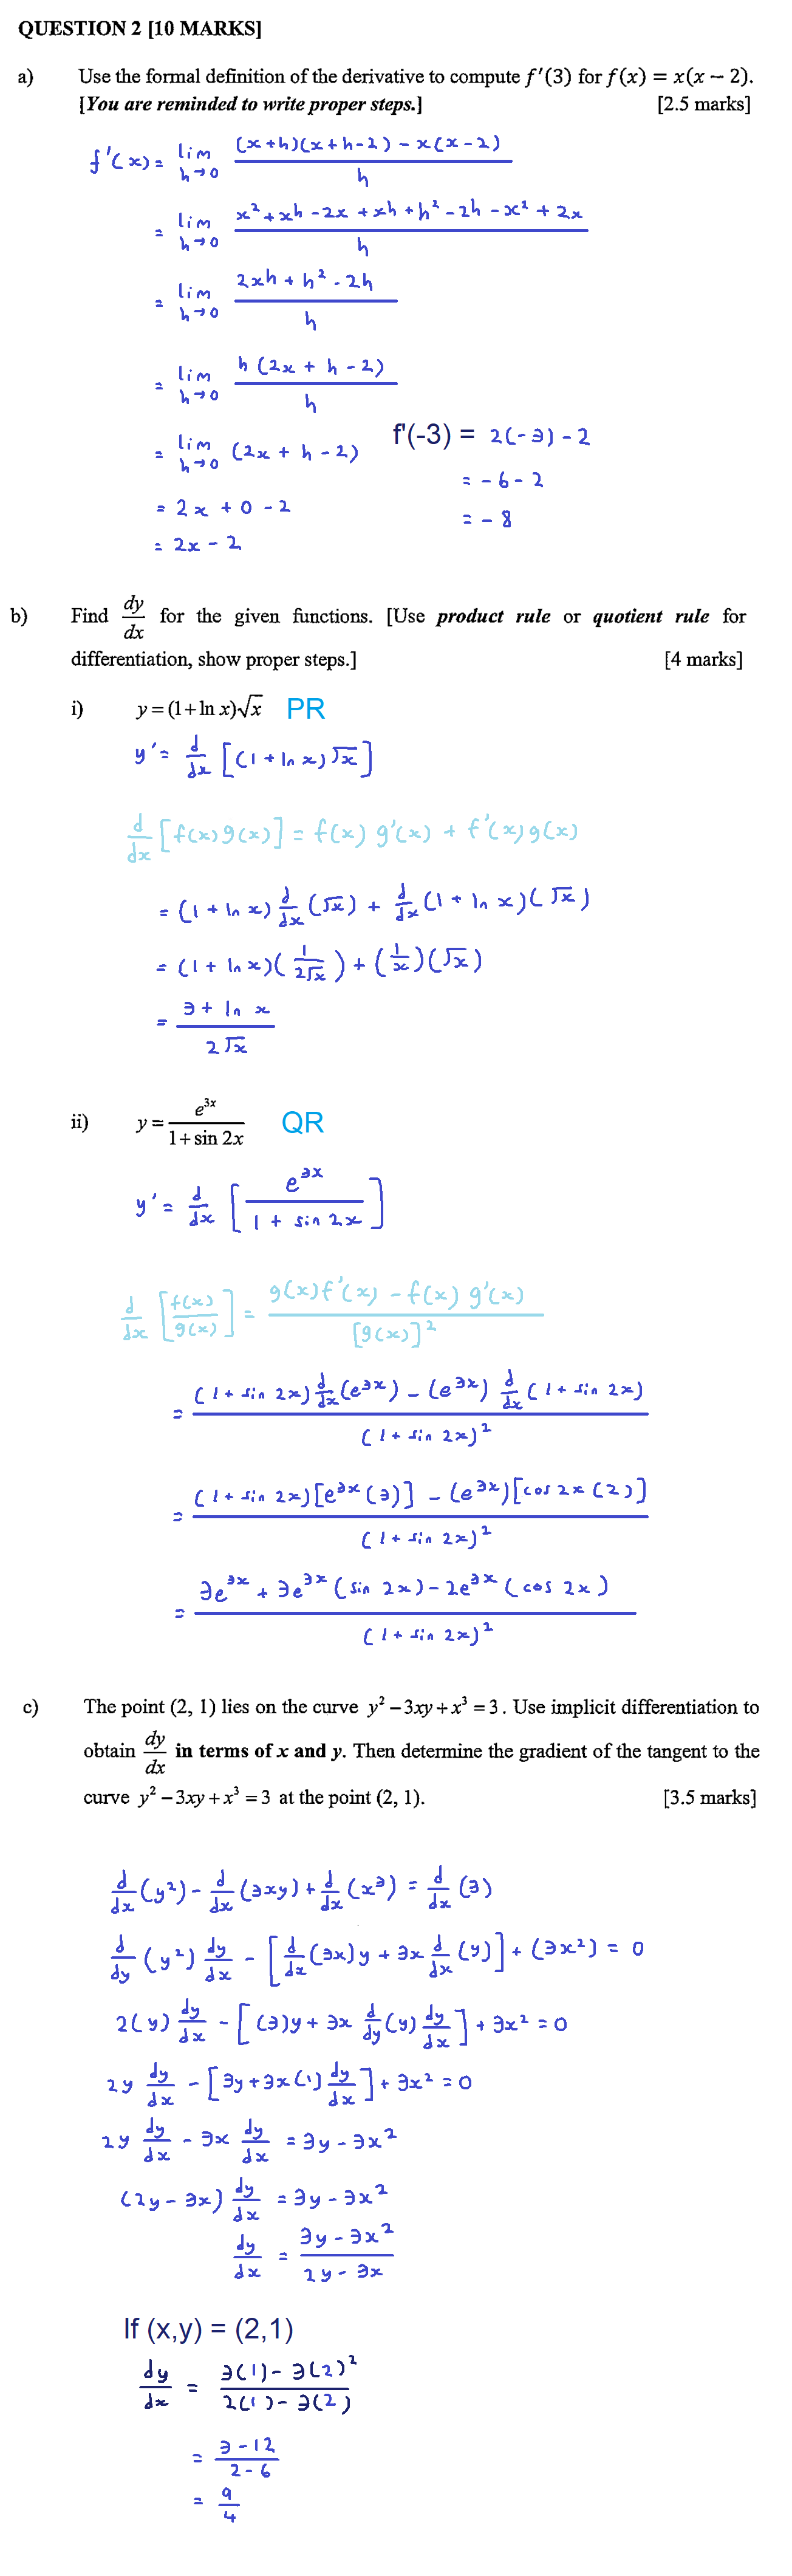 QUESTION 2 [10 MARKS]
a) Use the formal definition of the derivative to compute f'(3) for f(x) = x(x − 2).
[You are reminded to write proper steps.] [2.5 marks]
f'(x) = lim h→0 ((x+h)(x+h-2) - x(x-2))/h
= lim h→0 (x² + xh - 2x + xh + h² - 2h - x² + 2x)/h
= lim h→0 (2xh + h² - 2h)/h
= lim h→0 (h(2x + h - 2))/h
= lim h→0 (2x + h - 2)
= 2x + 0 - 2
= 2x - 2
f'(-3) = 2(-3) - 2
= -6 - 2
= -8
b) Find dy/dx for the given functions. [Use product rule or quotient rule for
differentiation, show proper steps.] [4 marks]
i) y = (1 + ln x)√x PR
y' = d/dx [(1 + ln x)√x]
d/dx [f(x)g(x)] = f(x) g'(x) + f'(x) g(x)
= (1 + ln x) d/dx (√x) + d/dx (1 + ln x)(√x)
= (1 + ln x)(1/(2√x)) + (1/x)(√x)
= (3 + ln x)/(2√x)
ii) y = e^(3x)/(1 + sin 2x) QR
y' = d/dx [e^(3x)/(1 + sin 2x)]
d/dx [f(x)/g(x)] = (g(x)f'(x) - f(x) g'(x))/[g(x)]²
= ((1 + sin 2x) d/dx (e^(3x)) - (e^(3x)) d/dx (1 + sin 2x))/(1 + sin 2x)²
= ((1 + sin 2x)[e^(3x) (3)] - (e^(3x))[cos 2x (2)])/(1 + sin 2x)²
= (3e^(3x) + 3e^(3x) (sin 2x) - 2e^(3x) (cos 2x))/(1 + sin 2x)²
c) The point (2, 1) lies on the curve y² − 3xy + x³ = 3. Use implicit differentiation to
obtain dy/dx in terms of x and y. Then determine the gradient of the tangent to the
curve y² − 3xy + x³ = 3 at the point (2, 1). [3.5 marks]
d/dx (y²) - d/dx (3xy) + d/dx (x³) = d/dx (3)
d/dy (y²) dy/dx - [d/dx (3x)y + 3x d/dx (y)] + (3x²) = 0
2(y) dy/dx - [(3)y + 3x d/dy (y) dy/dx] + 3x² = 0
2y dy/dx - [3y + 3x(1) dy/dx] + 3x² = 0
2y dy/dx - 3x dy/dx = 3y - 3x²
(2y - 3x) dy/dx = 3y - 3x²
dy/dx = (3y - 3x²)/(2y - 3x)
If (x,y) = (2,1)
dy/dx = (3(1) - 3(2)²)/(2(1) - 3(2))
= (3 - 12)/(2 - 6)
= 9/4